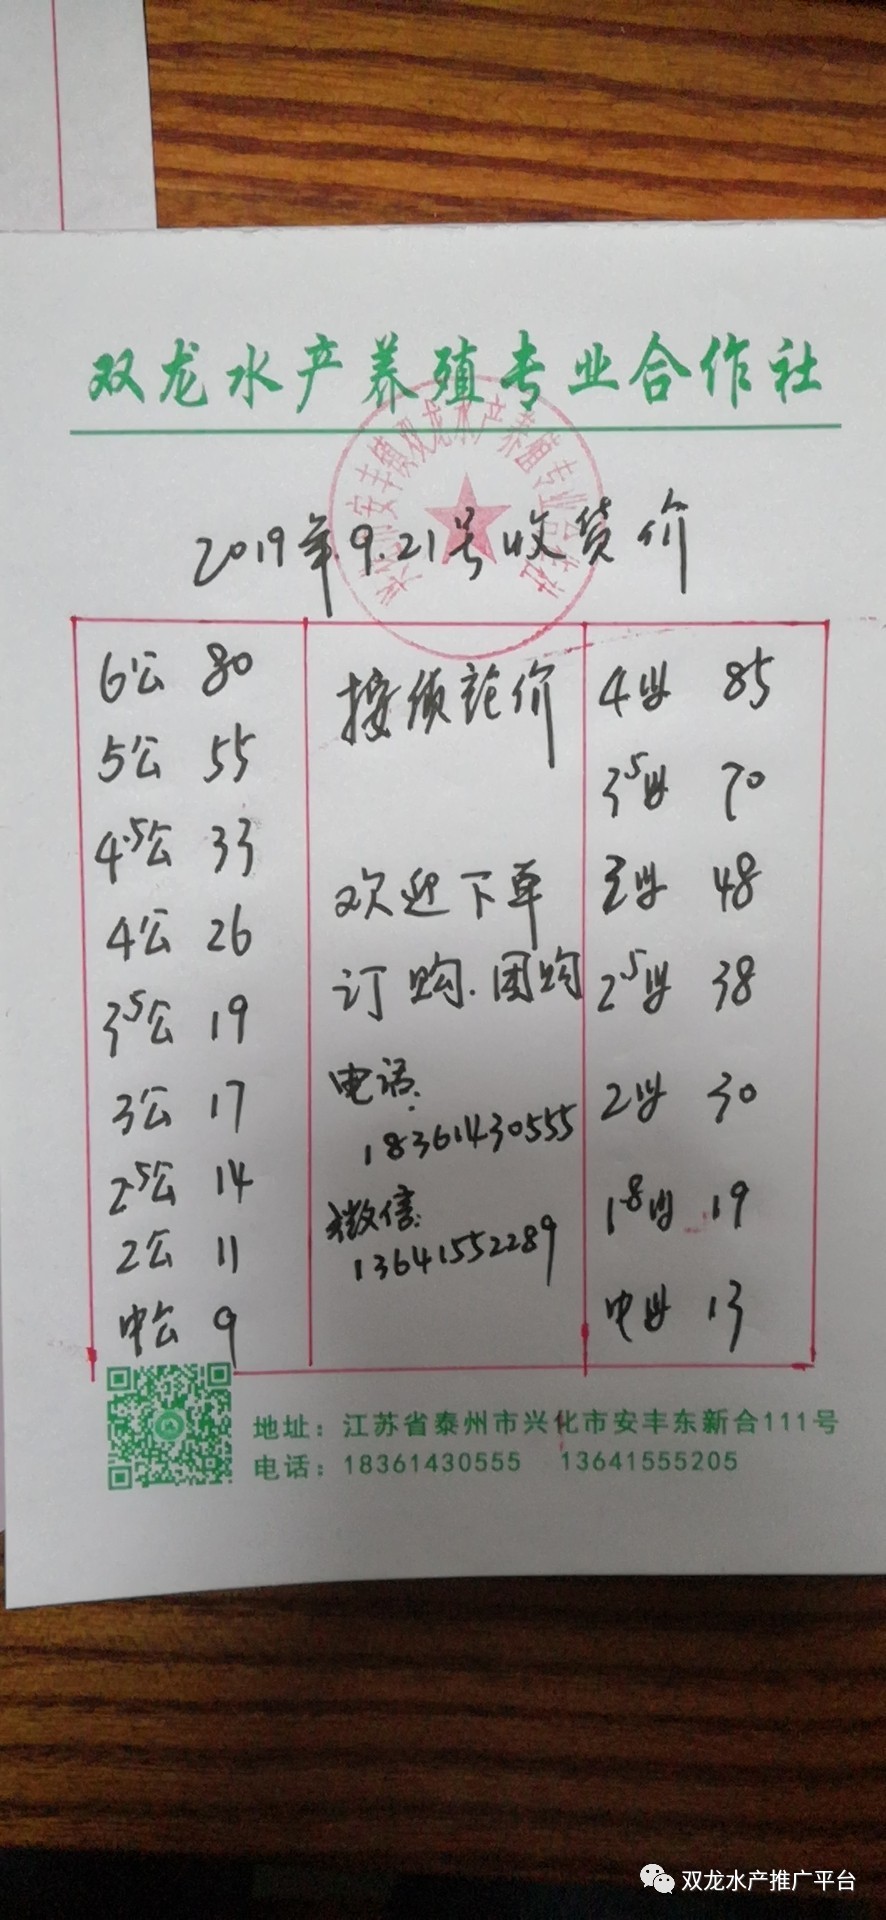 双龙水产养殖专业合作社
兴化市安丰镇双龙水产养殖专业合作社
2019年.9.21号收货价
6公 80
5公 55
4.5公 33
4公 26
3.5公 19
3公 17
2.5公 14
2公 11
中公 9
按质论价
欢迎下单
订购.团购
电话:
18361430555
微信:
13641552289
4母 85
3.5母 70
3母 48
2.5母 38
2母 30
1.8母 19
中母 13
地址：江苏省泰州市兴化市安丰东新合111号
电话：18361430555 13641555205
双龙水产推广平台